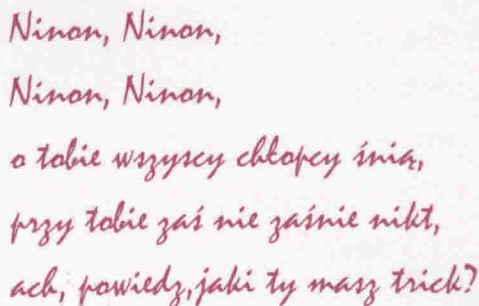 Ninon, Ninon,
Ninon, Ninon,
o tobie wszyscy chłopcy śnią,
przy tobie zaś nie zaśnie nikt,
ach, powiedz, jaki ty masz trick?